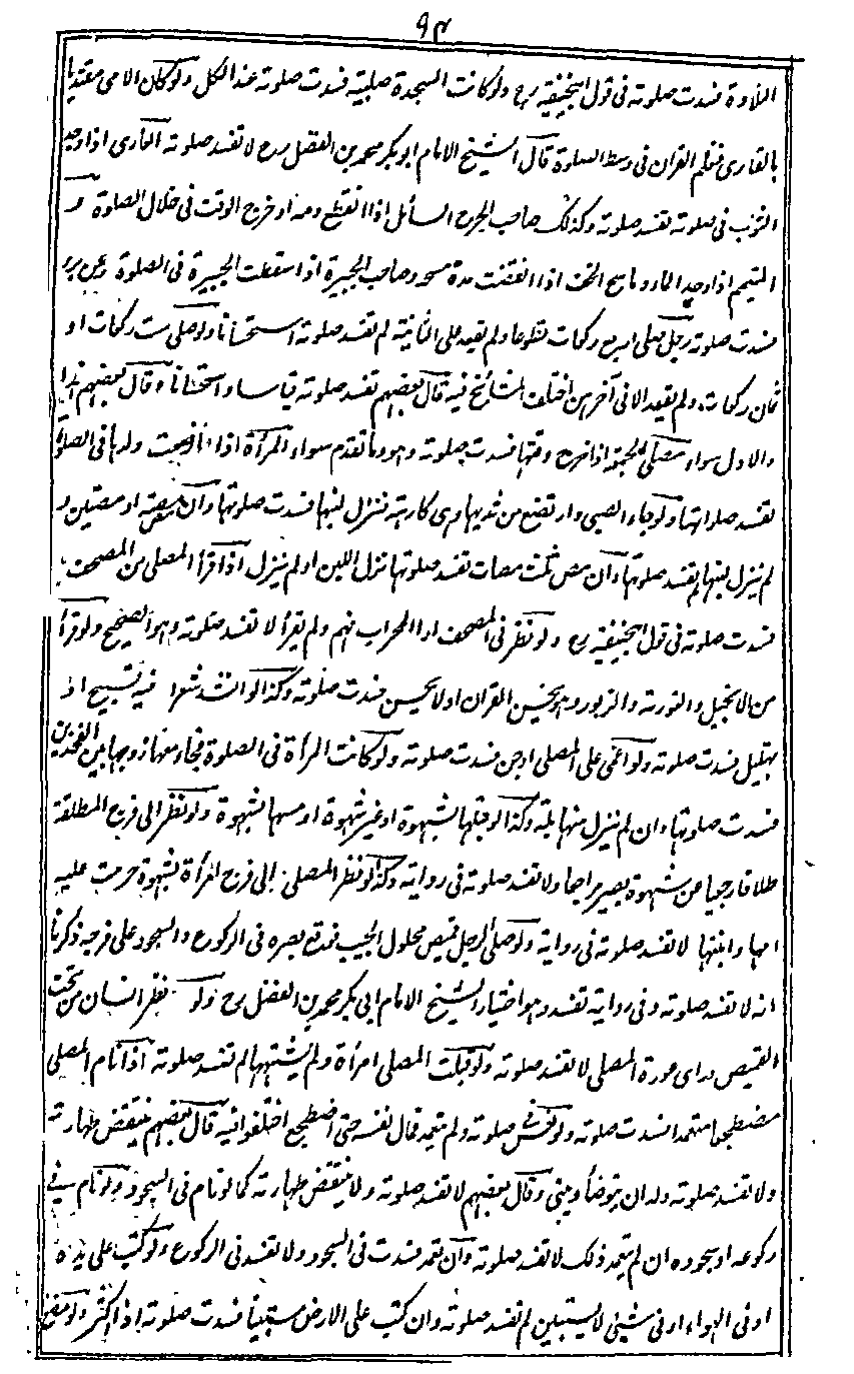 ٩٣
التلاوة فسدت صلوته فى قول ابيحنيفة رح ولو كانت السجدة صلبية فسدت صلوته عند الكل ولو كان الامى مقتديا
بالقارى فتعلم القران فى وسط الصلوة قال الشيخ الامام ابو بكر محمد بن الفضل رح لا تفسد صلوته العارى اذا وجد
الثوب فى صلوته تفسد صلوته وكذلك صاحب الجرح السائل اذا انقطع دمه او خرج الوقت فى خلال الصلوة و
المتيمم اذا وجد الماء وماسح الخف اذا انقضت مدة مسحه وصاحب الجبيرة اذا سقطت الجبيرة فى الصلوة عن برء
فسدت صلوته رجل صلى اربع ركعات تطوعا ولم يقعد على الثانية لم تفسد صلوته استحسانا ولو صلى ست ركعات او
ثمان ركعات ولم يقعد الا فى آخرهن اختلف المشائخ فيه قال بعضهم تفسد صلوته قياسا واستحسانا وقال بعضهم هذا
والاول سواء مصلى الجمعة اذا خرج وقتها فسدت صلوته وهو وما تقدم سواء المرأة اذا ارضعت ولدها فى الصلوة
تفسد صلوتها ولو جاء الصبى وارتضع من ثديها وهى كارهة فنزل لبنها فسدت صلوتها وان مص مصة او مصتين و
لم ينزل لبنها لم تفسد صلوتها وان مص ثلث مصات تفسد صلوتها نزل اللبن او لم ينزل اذا قرأ المصلى من المصحف
فسدت صلوته فى قول ابيحنيفة رح ولو نظر فى المصحف او المحراب ففهم ولم يقرأ لا تفسد صلوته وهو الصحيح ولو قرأ
من الانجيل والتورية والزبور وهو يحسن القران او لا يحسن فسدت صلوته وكذا لو انشد شعرا فيه تسبيح او
تهليل فسدت صلوته ولو اغمى على المصلى او جن فسدت صلوته ولو كانت المرأة فى الصلوة فجامعها زوجها بين الفخذين
فسدت صلوتها وان لم ينزل منها بلة وكذا لو قبلها بشهوة او غير شهوة او مسها بشهوة ولو نظر الى فرج المطلقة
طلاقا رجعيا عن شهوة يصير مراجعا ولا تفسد صلوته فى رواية وكذا لو نظر المصلى الى فرج امرأة بشهوة حرمت عليه
امها وابنتها لا تفسد صلوته فى رواية ولو صلى الرجل بقميص محلول الجيب فوقع بصره فى الركوع والسجود على فرجه ذكرنا
انه لا تفسد صلوته وفى رواية تفسد وهو اختيار الشيخ الامام ابى بكر محمد بن الفضل رح ولو نظر انسان من تحت
القميص وراى عورة المصلى لا تفسد صلوته ولو قبلت المصلى امرأة ولم يشتهها لم تفسد صلوته اذا نام المصلى
مضطجعا متعمدا فسدت صلوته ولو نعس فى صلوته ولم يتعمد فمال نفسه حتى اضطجع اختلفوا فيه قال بعضهم ينتقض طهارته
ولا تفسد صلوته وله ان يتوضأ ويبنى وقال بعضهم لا تفسد صلوته ولا ينتقض طهارته كما لو نام فى السجود ولو نام فى
ركوعه او سجوده ان لم يتعمد ذلك لا تفسد صلوته وان تعمد فسدت فى السجود ولا تفسد فى الركوع ولو كتب على يده
او فى الهواء او فى شئ لا يستبين لم تفسد صلوته وان كتب على الارض مستبينا فسدت صلوته اذا اكثر ولو مضغ